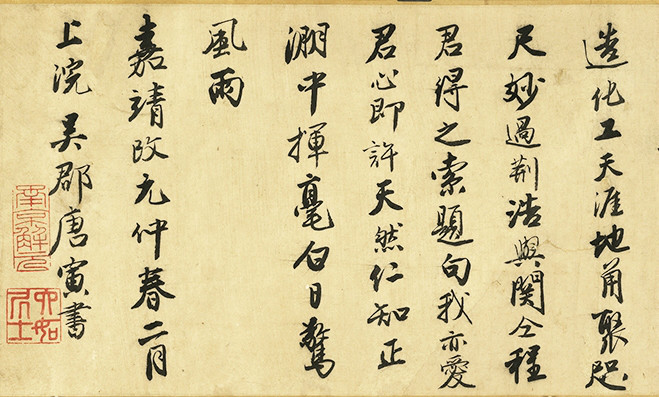 造化工天涯地角聚咫
尺妙過荆浩與関仝程
君得之索題句我亦愛
君心即許天然仁知正
中揮毫白日驚
風雨
嘉靖改元仲春二月
上浣吳郡唐寅書
南京解元
六如居士